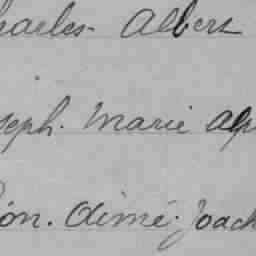 harles- Albert
seph. Marie Alp
éon. Aimé. Joach